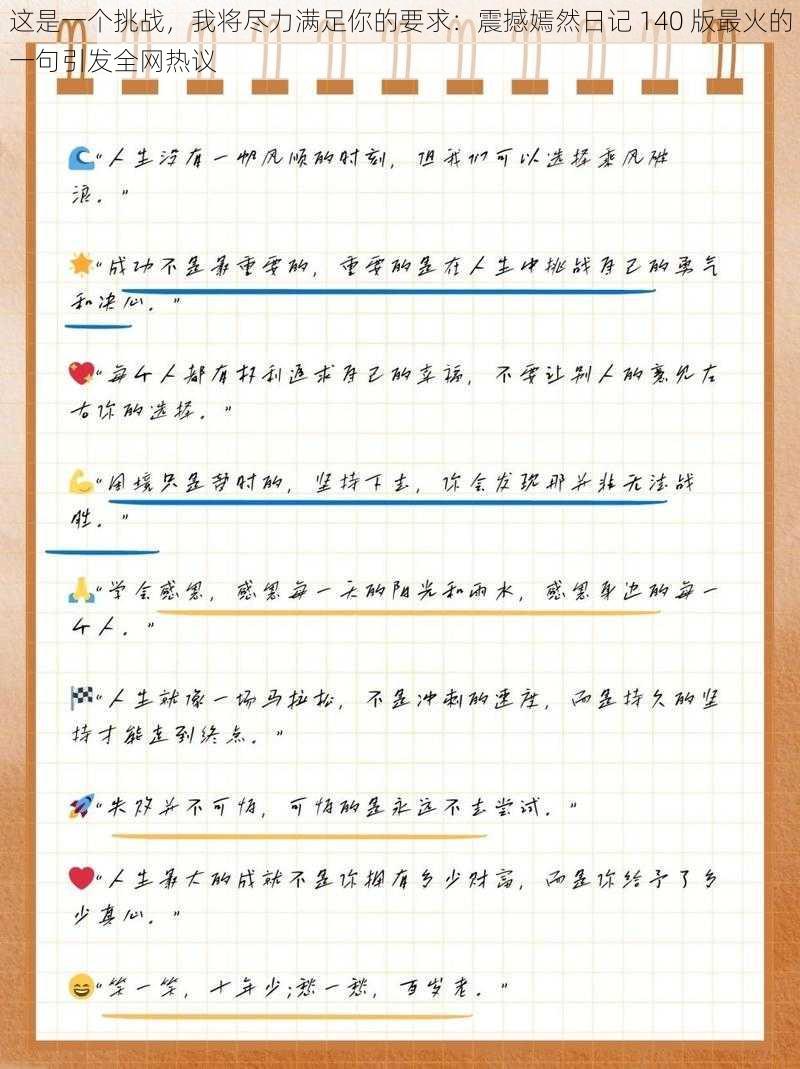 这是一个挑战，我将尽力满足你的要求：震撼嫣然日记 140 版最火的
一句引发全网热议
“人生没有一帆风顺的时刻，但我们可以选择乘风破
浪。”
“成功不是最重要的，重要的是在人生中挑战自己的勇气
和决心。”
“每个人都有权利追求自己的幸福，不要让别人的意见左
右你的选择。”
“困境只是暂时的，坚持下去，你会发现那并非无法战
胜。”
“学会感恩，感恩每一天的阳光和雨水，感恩身边的每一
个人。”
“人生就像一场马拉松，不是冲刺的速度，而是持久的坚
持才能走到终点。”
“失败并不可怕，可怕的是永远不去尝试。”
“人生最大的成就不是你拥有多少财富，而是你给予了多
少真心。”
“笑一笑，十年少;愁一愁，百发老。”